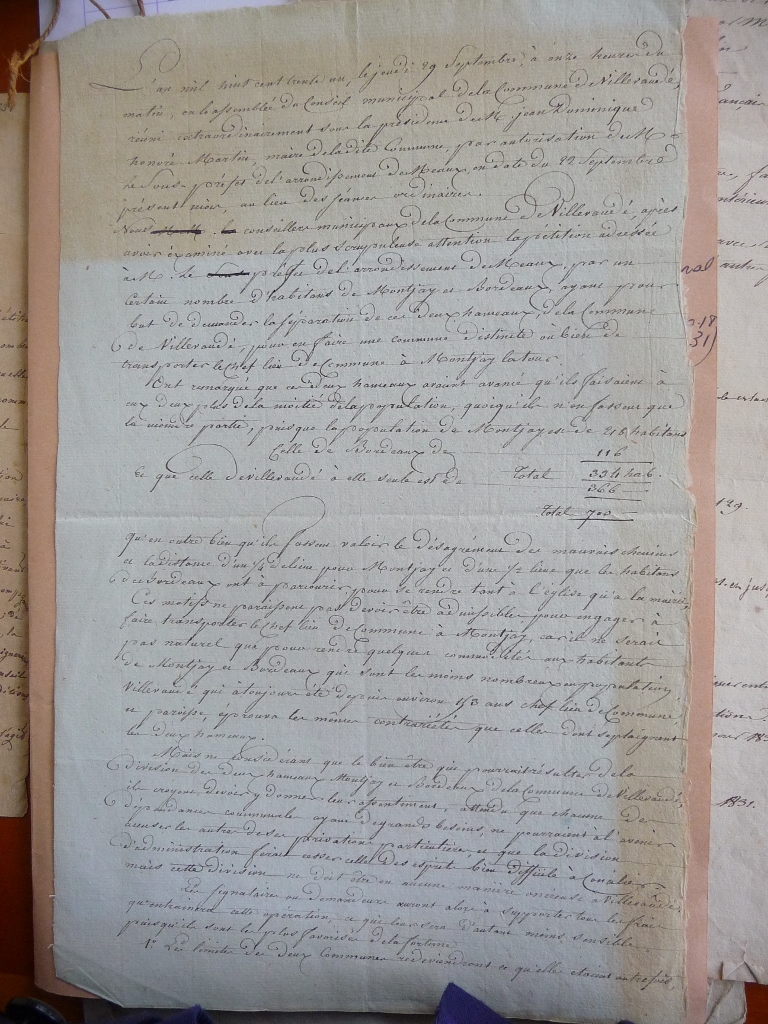 L'an mil huit cent trente un, le jeudi 29 Septembre, à onze heures du
matin, en l'assemblée du Conseil municipal de la Commune de Villevaudé,
réuni extraordinairement sous la présidence de Mr. jean Dominique
honoré Martin, maire de ladite Commune, par autorisation de Mr.
le Sous-préfet de l'arrondissement de Meaux, en date du 22 Septembre
présent mois, au lieu des séances ordinaires.
Nous conseillers municipaux de la Commune de Villevaudé, après
avoir examiné avec la plus scrupuleuse attention la pétition adressée
à M. le préfet de l'arrondissement de Meaux, par un
certain nombre d'habitans de Montjay et Bordeaux, ayant pour
but de demander la séparation de ces deux hameaux, de la Commune
de Villevaudé, pour en faire une commune distincte ou bien de
transporter le chef lieu de Commune à Montjay la tour.
Ont remarqué que ces deux hameaux avaient avancé qu'ils faisaient à
eux deux plus de la moitié de la population, quoiqu'ils n'en fassent que
la moindre partie, puisque la population de Montjay est de 218 habitans
Celle de Bordeaux de 116
Total 334 hab.
et que celle de Villevaudé à elle seule est de 366
Total 700
Qu'en outre bien qu'ils fassent valoir le désagrément des mauvais chemins
et la distance d'un 1/4 de lieue pour Montjay et d'une 1/2 lieue que les habitans
de Bordeaux ont à parcourir pour se rendre tant à l'église qu'à la mairie,
Ces motifs ne paraissent pas devoir être admissibles pour engager à
faire transporter le Chef lieu de Commune à Montjay, car il ne serait
pas naturel que pour rendre quelques commodités aux habitants
de Montjay et Bordeaux qui sont les moins nombreux en population,
Villevaudé qui a toujours été depuis environ 1/3 ans chef lieu de Commune
et paroisse, éprouva les mêmes contrariétés que celles dont se plaignent
les deux hameaux.
Mais ne considérant que le bien être qui pourrait résulter de la
division des deux hameaux Montjay et Bordeaux de la Commune de Villevaudé,
ils croyent devoir y donner leur assentiment, attendu que chacune de
dépendance communale ayant de grands besoins, ne pourraient à l'avenir
accuser les autres de ses privations particulières, et que la division
d'administration ferait cesser celle des esprits bien difficile à concilier,
mais cette division ne doit être en aucune manière onéreuse à Villevaudé.
Les signataires ou demandeurs auront alors à supporter tous les frais
qu'entrainera cette opération, ce qui leur sera d'autant moins sensible
puisqu'ils sont les plus favorisés de la fortune.
1° Les limites des deux Communes redeviendront ce qu'elles étaient autrefois,
val
31)
129.
1831.